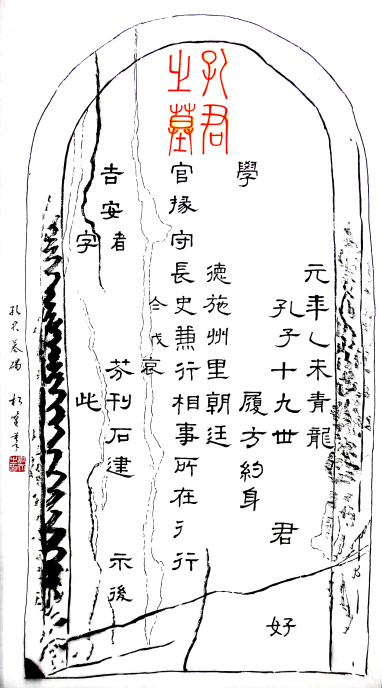 孔君之墓
元年乙未青龍
孔子十九世 君 好
學 履方約身
德施州里朝廷
官掾守長史兼行相事所在彳行
戊哀
吉安者 芬刊石建 示後
字 此
孔君墓碣